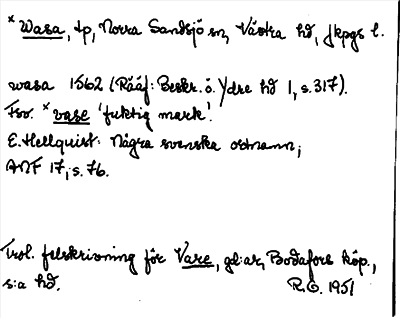 * Wasa, tp, Norra Sandsjö sn, Västra hd, Jkpgs l.
wasa 1562 (Rääf: Beskr. ö. Ydre hd 1, s.317).
Fsv. * vase 'fuktig mark'.
E. Hellquist: Några svenska ortnamn,
ANF 17, s. 76.
Trol. felskrivning för Vare, gd:ar, Bodafors köp.,
s:a hd. R.O. 1951